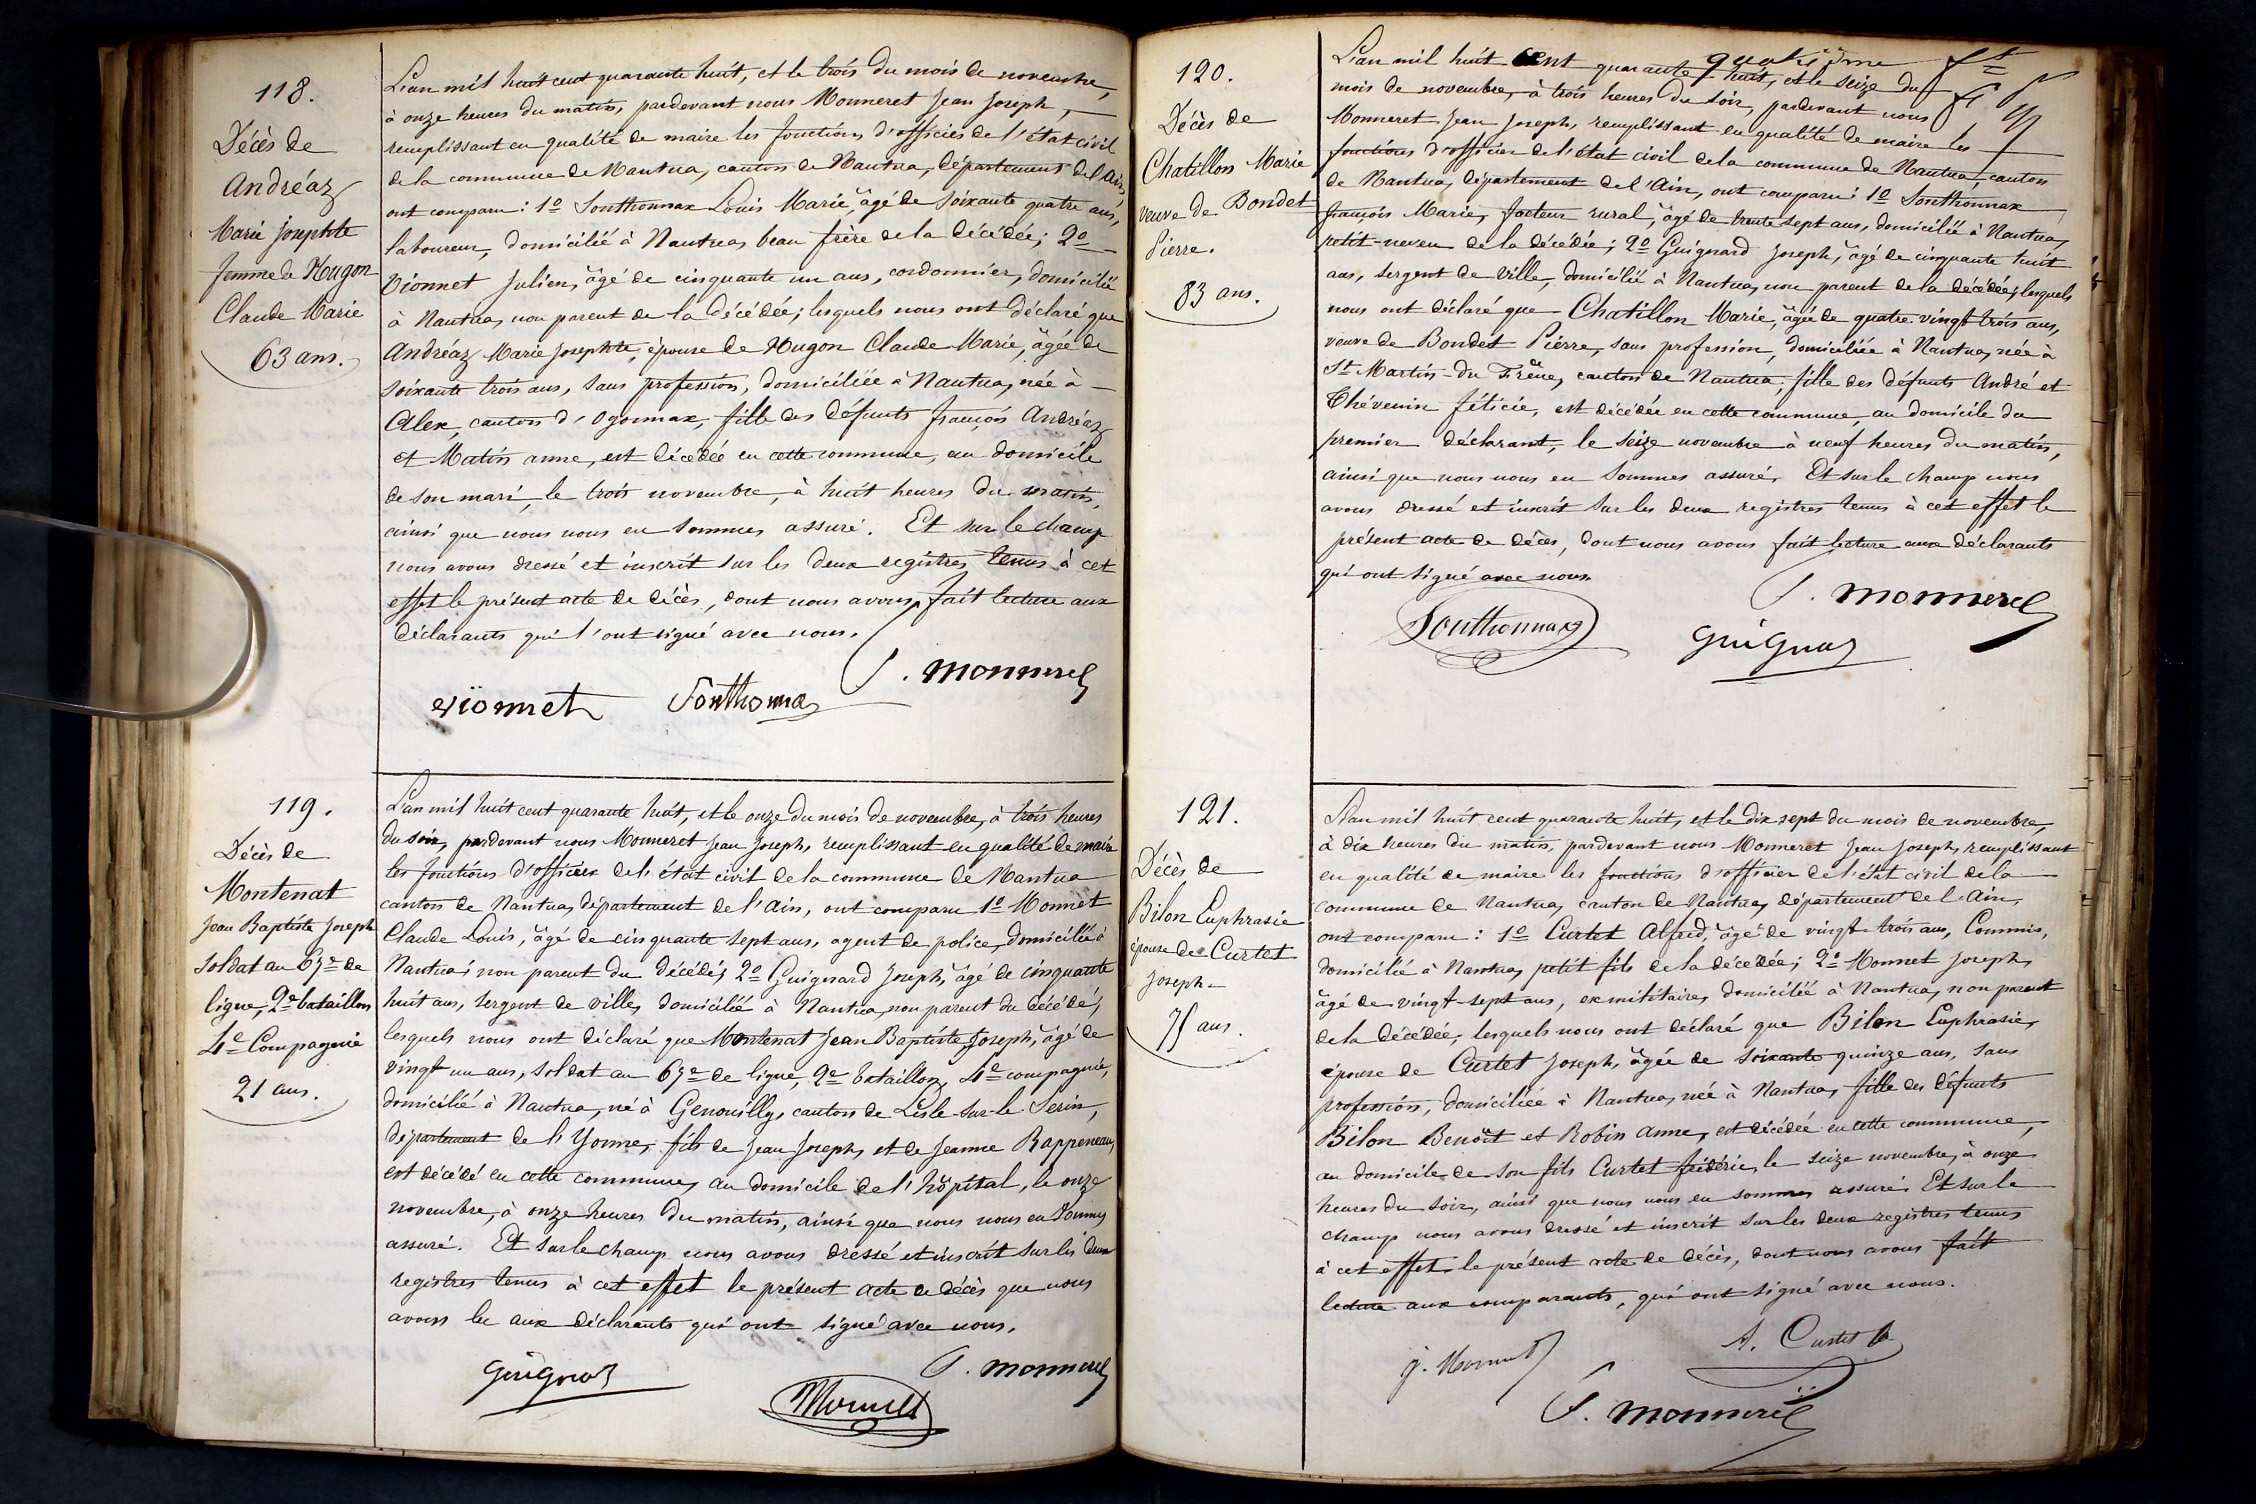 118.
Décès de
Andréaz
Marie Josephte
femme de Hugon
Claude Marie
63 ans.
L'an mil huit cent quarante huit, et le trois du mois de novembre,
à onze heures du matin, pardevant nous Monneret Jean Joseph,
remplissant en qualité de maire les fonctions d'officier de l'état civil
de la commune de Nantua, canton de Nantua, département de l'Ain,
ont comparu: 1º Sonthonnax Louis Marie, âgé de soixante quatre ans,
laboureur, domicilié à Nantua, beau frère de la décédée; 2º
Vionnet Julien, âgé de cinquante un ans, cordonnier, domicilié
à Nantua, non parent de la décédée; lesquels nous ont déclaré que
Andréaz Marie Josephte, épouse de Hugon Claude Marie, âgée de
soixante trois ans, sans profession, domiciliée à Nantua, née à
Alex, canton d'Oyonnax, fille des défunts françois Andréaz
et Matin anne, est décédée en cette commune, au domicile
de son mari, le trois novembre, à huit heures du matin,
ainsi que nous nous en sommes assuré. Et sur le champ
nous avons dressé et inscrit sur les deux registres tenus à cet
effet le présent acte de décès, dont nous avons fait lecture aux
déclarants qui l'ont signé avec nous.
J. Monneret
Vionnet Sonthonnax
119.
Décès de
Montenat
Jean Baptiste Joseph
soldat au 67e de
ligne, 2e bataillon
4e Compagnie
21 ans.
L'an mil huit cent quarante huit, et le onze du mois de novembre, à trois heures
du soir, pardevant nous Monneret Jean Joseph, remplissant en qualité de maire
les fonctions d'officier de l'état civil de la commune de Nantua
canton de Nantua, département de l'Ain, ont comparu 1º Monnet
Claude Louis, âgé de cinquante sept ans, agent de police, domicilié à
Nantua; non parent du décédé; 2º Guignard Joseph, âgé de cinquante
huit ans, sergent de ville, domicilié à Nantua, non parent du décédé,
lesquels nous ont déclaré que Montenat Jean Baptiste Joseph, âgé de
vingt un ans, soldat au 67e de ligne, 2e bataillon, 4e compagnie,
domicilié à Nantua, né à Genouilly, canton de Lisle-sur-le Serin,
département de l'Yonne, fils de Jean Joseph, et de Jeanne Rappeneau,
est décédé en cette commune, au domicile de l'hôpital, le onze
novembre, à onze heures du matin, ainsi que nous nous en sommes
assuré. Et sur le champ nous avons dressé et inscrit sur les deux
registres tenus à cet effet le présent acte de décès que nous
avons lu aux déclarants qui ont signé avec nous.
Guignard J. Monneret
Monnet
120.
Décès de
Chatillon Marie
veuve de Bondet
Pierre.
83 ans.
quatrième
L'an mil huit cent quarante huit, et le seize du
mois de novembre, à trois heures du soir, pardevant nous
Monneret Jean Joseph, remplissant en qualité de maire les
fonctions d'officier de l'état civil de la commune de Nantua, canton
de Nantua, département de l'Ain, ont comparu: 1º Sonthonnax
françois Marie, facteur rural, âgé de trente sept ans, domicilié à Nantua,
petit-neveu de la décédée; 2º Guignard Joseph, âgé de cinquante huit
ans, sergent de ville, domicilié à Nantua, non parent de la décédée, lesquels
nous ont déclaré que Chatillon Marie, âgée de quatre vingt trois ans,
veuve de Bondet Pierre, sans profession, domiciliée à Nantua, née à
St Martin-du Frêne, canton de Nantua, fille des défunts André et
Thévenin féticie, est décédée en cette commune, au domicile du
premier déclarant, le seize novembre à neuf heures du matin,
ainsi que nous nous en sommes assuré. Et sur le champ nous
avons dressé et inscrit sur les deux registres tenus à cet effet le
présent acte de décès, dont nous avons fait lecture aux déclarants
qui ont signé avec nous.
J. Monneret
Sonthonnax
Guignard
121.
Décès de
Bilon Euphrasie
épouse de Curtet
Joseph
75 ans.
L'an mil huit cent quarante huit, et le dix sept du mois de novembre,
à dix heures du matin, pardevant nous Monneret Jean Joseph, remplissant
en qualité de maire les fonctions d'officier de l'état civil de la
commune de Nantua, canton de Nantua, département de l'Ain,
ont comparu: 1º Curtet Alfred, âgé de vingt-trois ans, Commis,
domicilié à Nantua, petit fils de la décédée; 2º Monnet Joseph,
âgé de vingt-sept ans, ex militaire, domicilié à Nantua, non parent
de la décédée, lesquels nous ont déclaré que Bilon Euphrasie,
épouse de Curtet Joseph, âgée de soixante quinze ans, sans
profession, domiciliée à Nantua, née à Nantua, fille des défunts
Bilon Benoît et Robin Anne, est décédée en cette commune,
au domicile de son fils Curtet frédéric, le seize novembre, à onze
heures du soir, ainsi que nous nous en sommes assuré. Et sur le
champ nous avons dressé et inscrit sur les deux registres tenus
à cet effet le présent acte de décès, dont nous avons fait
lecture aux comparants, qui ont signé avec nous.
J. Monnet A. Curtet
J. Monneret